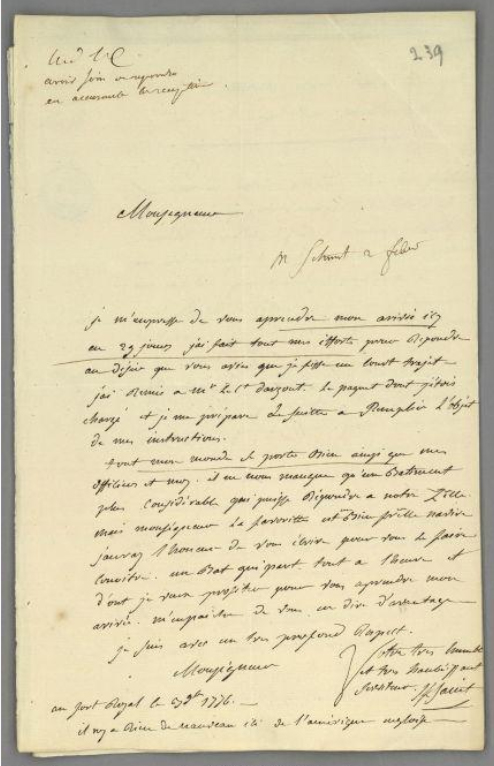 239
avoir soin de repondre
en accusant la reception
Monseigneur
je m'empresse de vous aprendre mon arrivée icy
en 29 jours j'ai fait tout mes efforts pour Repondre
au desir que vous aviés que je fisse un Court trajet
j'ai Remis a Mr Le Ct dargout. Le paquet dont j'étois
chargé et je me prépare de suitte a Remplir L'objet
de mes instructions.
tout mon monde se porte Bien ainsi que mes
officiers et moy. il ne nous manque qu'un Batiment
plus Considérable qui puisse Répondre a notre Zelle
mais monseigneur La favoritte est Bien frelle navire
j'auray l'honneur de vous écrire pour vous le faire
Connoitre. un Bat qui part tout a l'heure et
d'ont je veux profiter pour vous aprendre mon
arrivée. m'empaiche de vous en dire d'avantage
je suis avec un tres profond Respect.
Monseigneur
Votre tres humble
et tres haubéissant
serviteur
au fort Royal le 1776.
il n'y a Rien de nouveau ici de l'amérique angloise